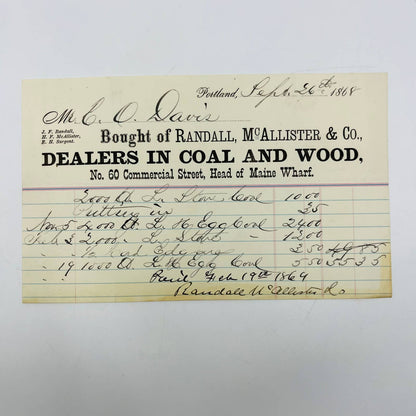 Portland, Sept. 26th 1868
M C. O. Davis
J. F. Randall,
H. F. McAllister,
E. H. Sargent.
Bought of RANDALL, McALLISTER & Co.,
DEALERS IN COAL AND WOOD,
No. 60 Commercial Street, Head of Maine Wharf.
2000 lb Stove Coal 10 00
Putting in 25
Nov 5 2000 lb. L. H. Egg Coal 24 00
Feb 2000 Stove " 12 00
3 50 49 85
" 19 1000 lb. L. H. Egg Coal 5 50 55 35
Paid Feb 19th 1869
Randall McAllister & Co